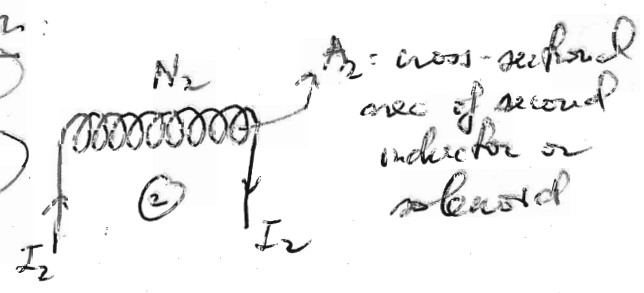 N₂
A₂ = cross-sectional
area of second
inductor or
solenoid
②
I₂
I₂